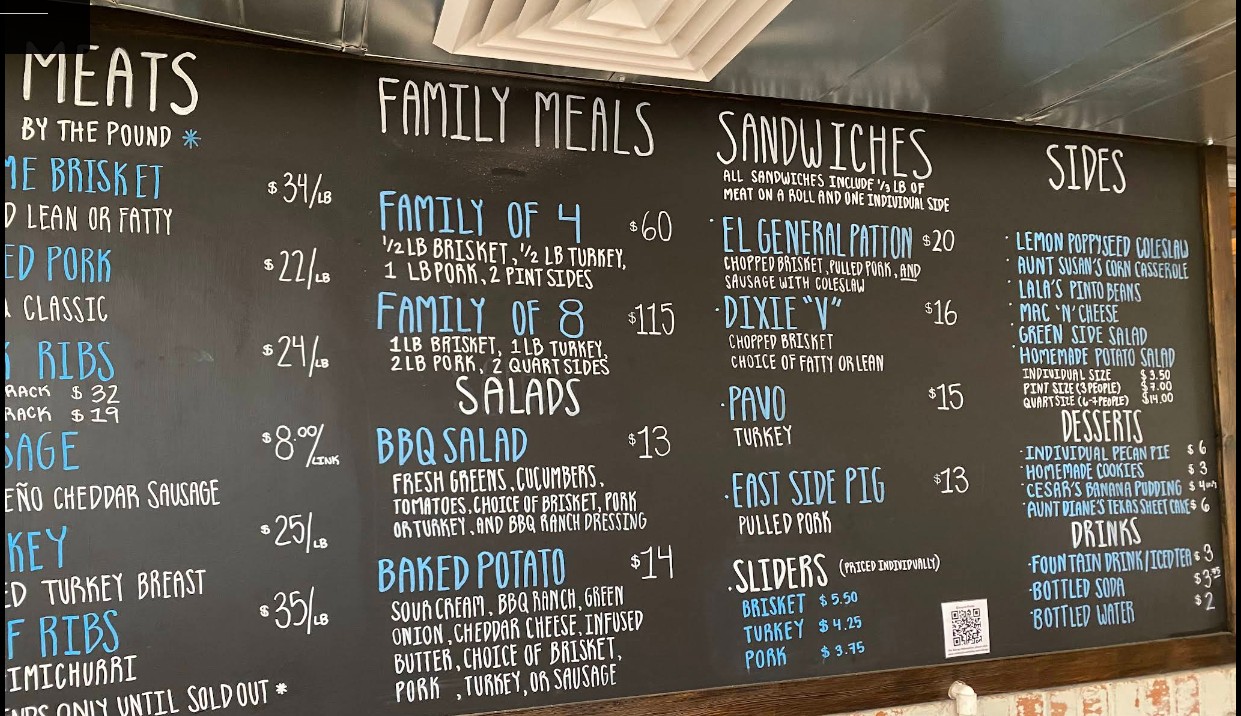 MEATS
BY THE POUND *
BRISKET $34/LB
LEAN OR FATTY
PORK $22/LB
CLASSIC
RIBS $24/LB
RACK $32
RACK $19
$8.00/LINK
CHEDDAR SAUSAGE
$25/LB
TURKEY BREAST
RIBS $35/LB
ONLY UNTIL SOLD OUT *
FAMILY MEALS
FAMILY OF 4 $60
1/2 LB BRISKET, 1/2 LB TURKEY,
1 LB PORK, 2 PINT SIDES
FAMILY OF 8 $115
1 LB BRISKET, 1 LB TURKEY,
2 LB PORK, 2 QUART SIDES
SALADS
BBQ SALAD $13
FRESH GREENS, CUCUMBERS,
TOMATOES, CHOICE OF BRISKET, PORK
OR TURKEY, AND BBQ RANCH DRESSING
BAKED POTATO $14
SOUR CREAM, BBQ RANCH, GREEN
ONION, CHEDDAR CHEESE, INFUSED
BUTTER, CHOICE OF BRISKET,
PORK , TURKEY, OR SAUSAGE
SANDWICHES
ALL SANDWICHES INCLUDE 1/3 LB OF
MEAT ON A ROLL AND ONE INDIVIDUAL SIDE
· EL GENERAL PATTON $20
CHOPPED BRISKET, PULLED PORK, AND
SAUSAGE WITH COLESLAW
· DIXIE "V" $16
CHOPPED BRISKET
CHOICE OF FATTY OR LEAN
· PAVO $15
TURKEY
· EAST SIDE PIG $13
PULLED PORK
· SLIDERS (PRICED INDIVIDUALLY)
BRISKET $5.50
TURKEY $4.25
PORK $3.75
SIDES
· LEMON POPPYSEED COLESLAW
· AUNT SUSAN'S CORN CASSEROLE
· LALA'S PINTO BEANS
· MAC 'N' CHEESE
· GREEN SIDE SALAD
· HOMEMADE POTATO SALAD
INDIVIDUAL SIZE $3.50
PINT SIZE (3 PEOPLE) $7.00
QUART SIZE (6-7 PEOPLE) $14.00
DESSERTS
· INDIVIDUAL PECAN PIE $6
· HOMEMADE COOKIES $3
· CESAR'S BANANA PUDDING $4
· AUNT DIANE'S TEXAS SHEET CAKE $6
DRINKS
· FOUNTAIN DRINK/ICED TEA $3
· BOTTLED SODA $3
· BOTTLED WATER $2